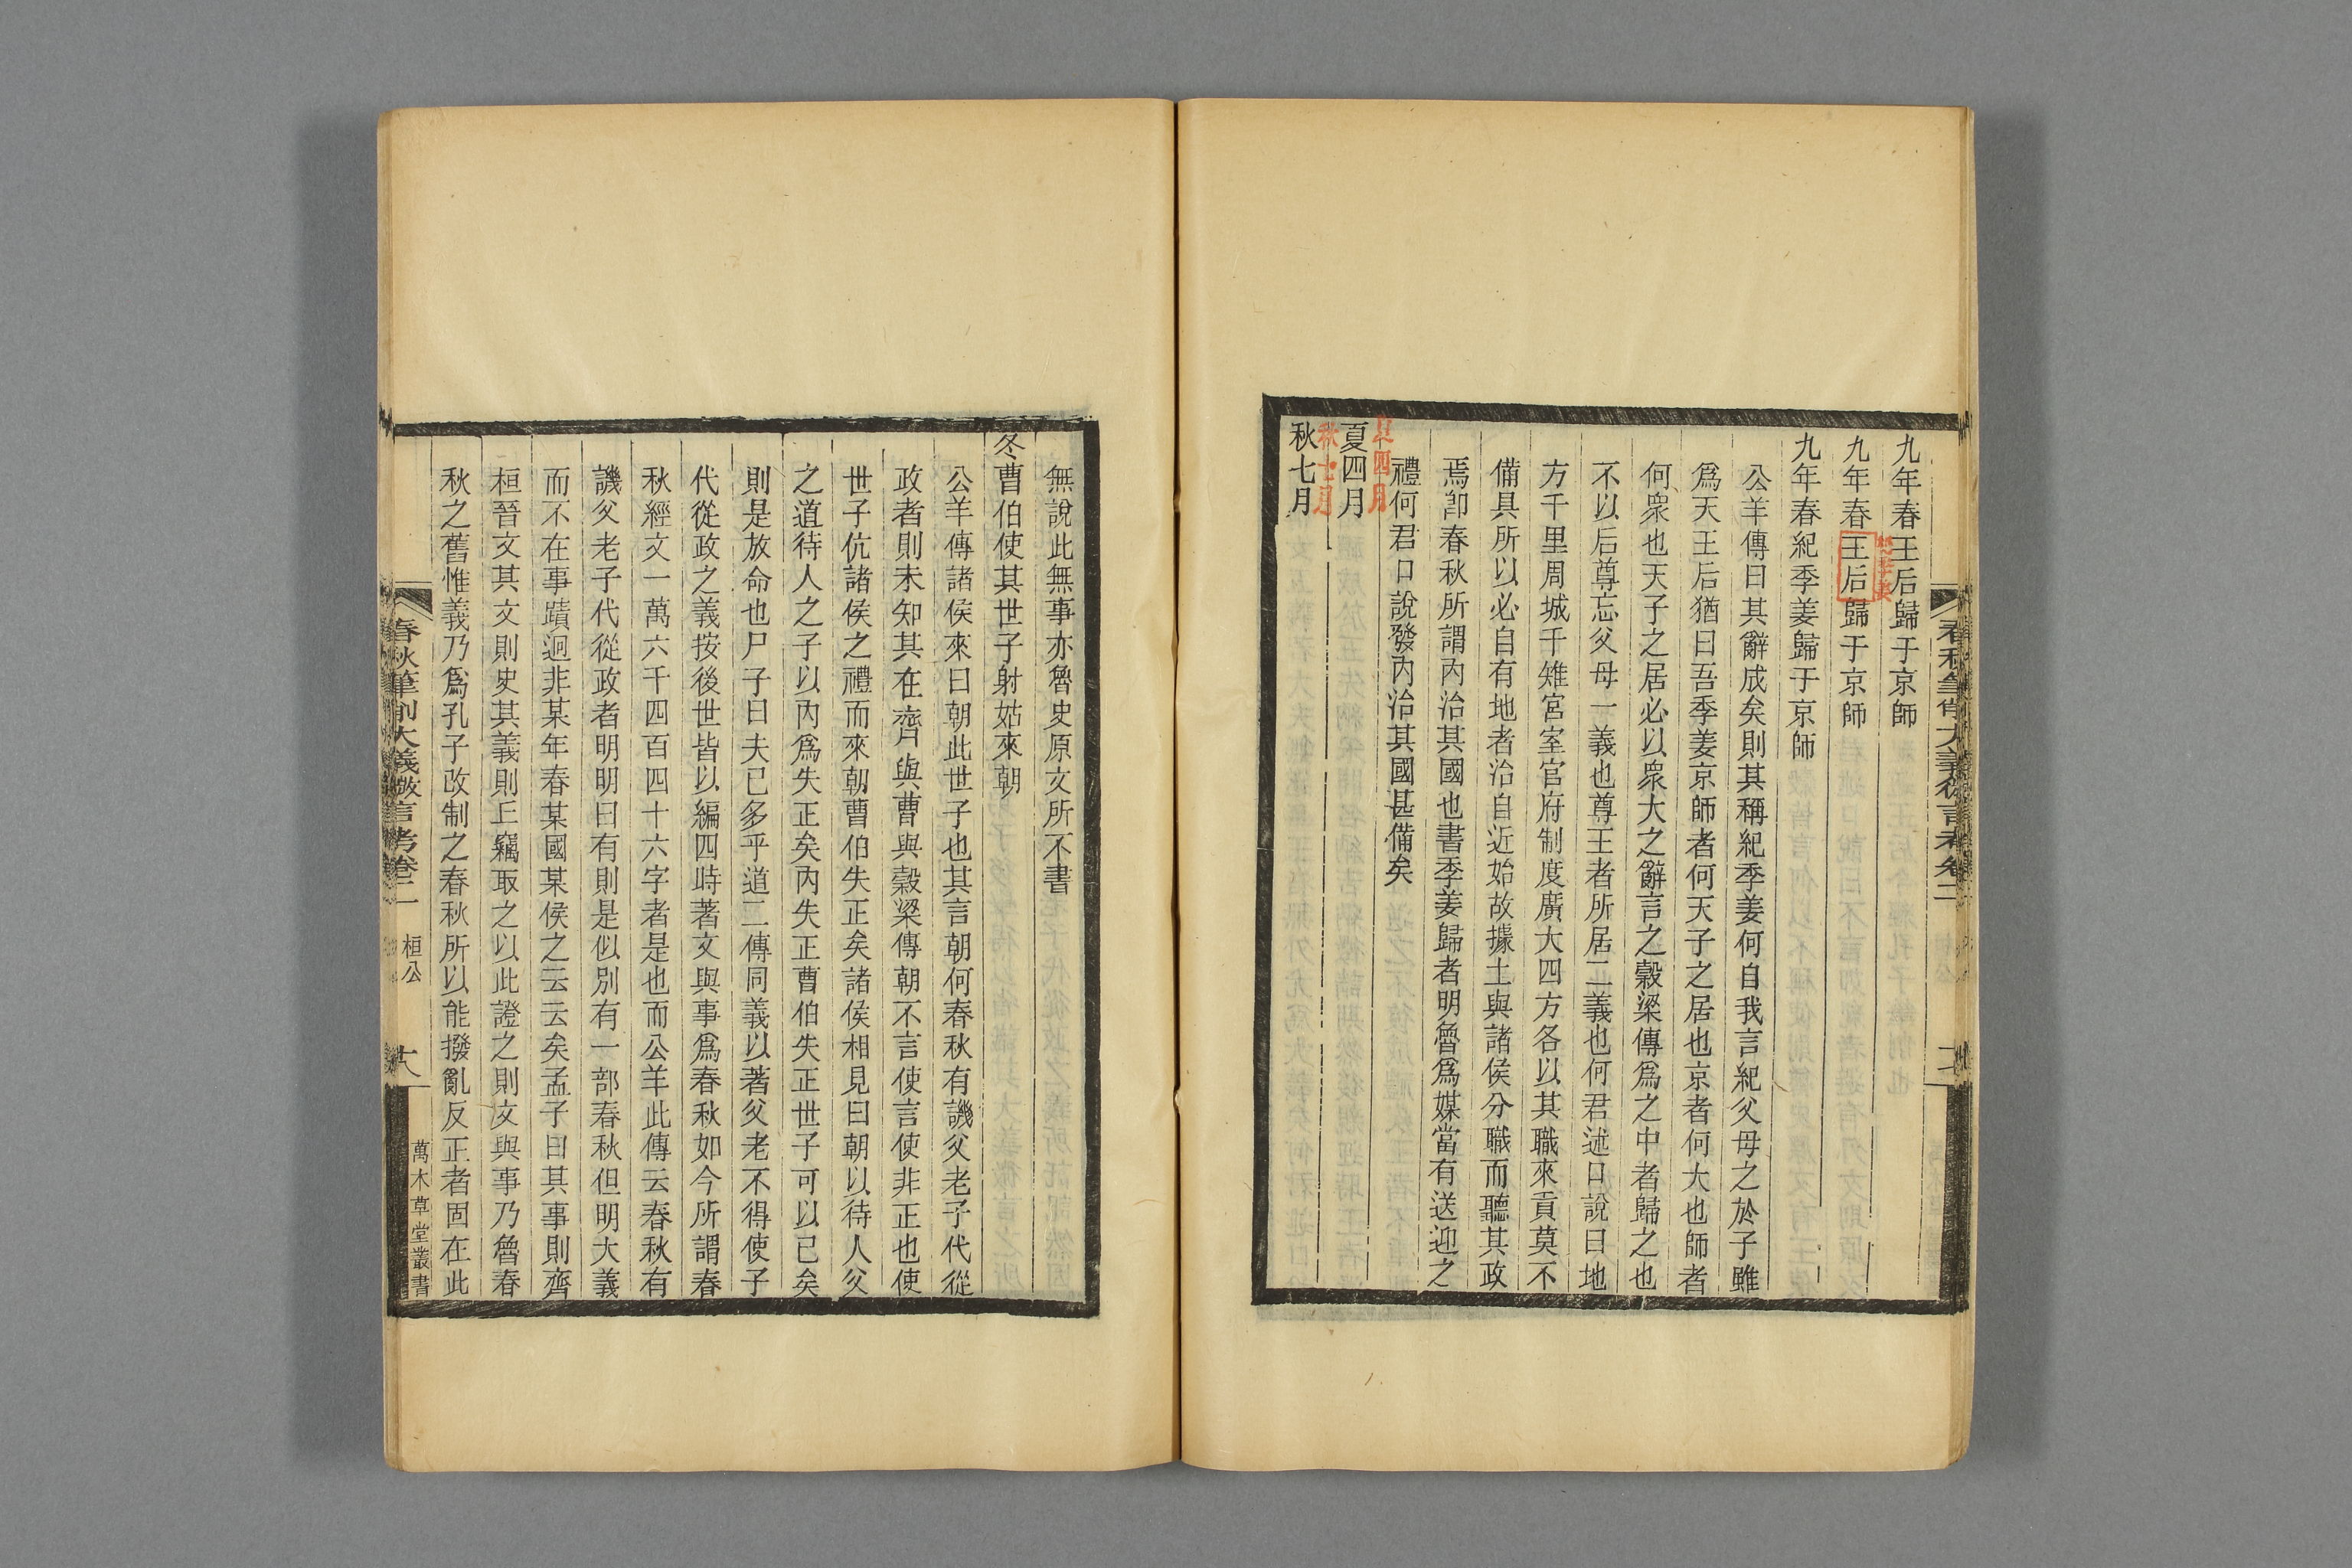 九年春王后歸于京師
九年春王后歸于京師
紀季姜
九年春紀季姜歸于京師
公羊傳曰其辭成矣則其稱紀季姜何自我言紀父母之於子雖
爲天王后猶曰吾季姜京師者何天子之居也京者何大也師者
何衆也天子之居必以衆大之辭言之穀梁傳爲之中者歸之也
不以后尊忘父母一義也尊王者所居二義也何君述口說曰地
方千里周城千雉宮室官府制度廣大四方各以其職來貢莫不
備具所以必自有地者治自近始故據土與諸侯分職而聽其政
焉卽春秋所謂內治其國也書季姜歸者明魯爲媒當有送迎之
禮何君口說發內治其國甚備矣
夏四月
夏四月
秋七月
秋七月
春秋筆削大義微言考卷二
十七
無說此無事亦魯史原文所不書
冬曹伯使其世子射姑來朝
公羊傳諸侯來曰朝此世子也其言朝何春秋有譏父老子代從
政者則未知其在齊與曹與穀梁傳朝不言使言使非正也使
世子伉諸侯之禮而來朝曹伯失正矣諸侯相見曰朝以待人父
之道待人之子以內爲失正矣內失正曹伯失正世子可以已矣
則是放命也尸子曰夫已多乎道二傳同義以著父老不得使子
代從政之義按後世皆以編四時著文與事爲春秋如今所謂春
秋經文一萬六千四百四十六字者是也而公羊此傳云春秋有
譏父老子代從政者明明曰有則是似別有一部春秋但明大義
而不在事蹟迥非某年春某國某侯之云云矣孟子曰其事則齊
桓晉文其文則史其義則丘竊取之以此證之則文與事乃魯春
秋之舊惟義乃爲孔子改制之春秋所以能撥亂反正者固在此
春秋筆削大義微言考卷二
桓公
十八
萬木草堂叢書